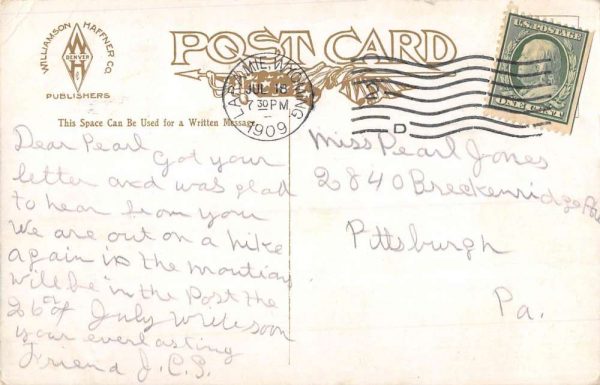 WILLIAMSON HAFFNER CO.
DENVER
W H
PUBLISHERS
POST CARD
LARAMIE, WYOMING.
JUL 18
7 30 PM
1909
D
U.S. POSTAGE
ONE CENT
This Space Can Be Used for a Written Message
Dear Pearl
Got your
letter and was glad
to hear from you
We are out on a hike
again in the moutians
will be in the Post the
26 of July Write soon
your everlasting
Friend J.C.S.
Miss Pearl Jones
2840 Breckenridge Ave
Pittsburgh
Pa.